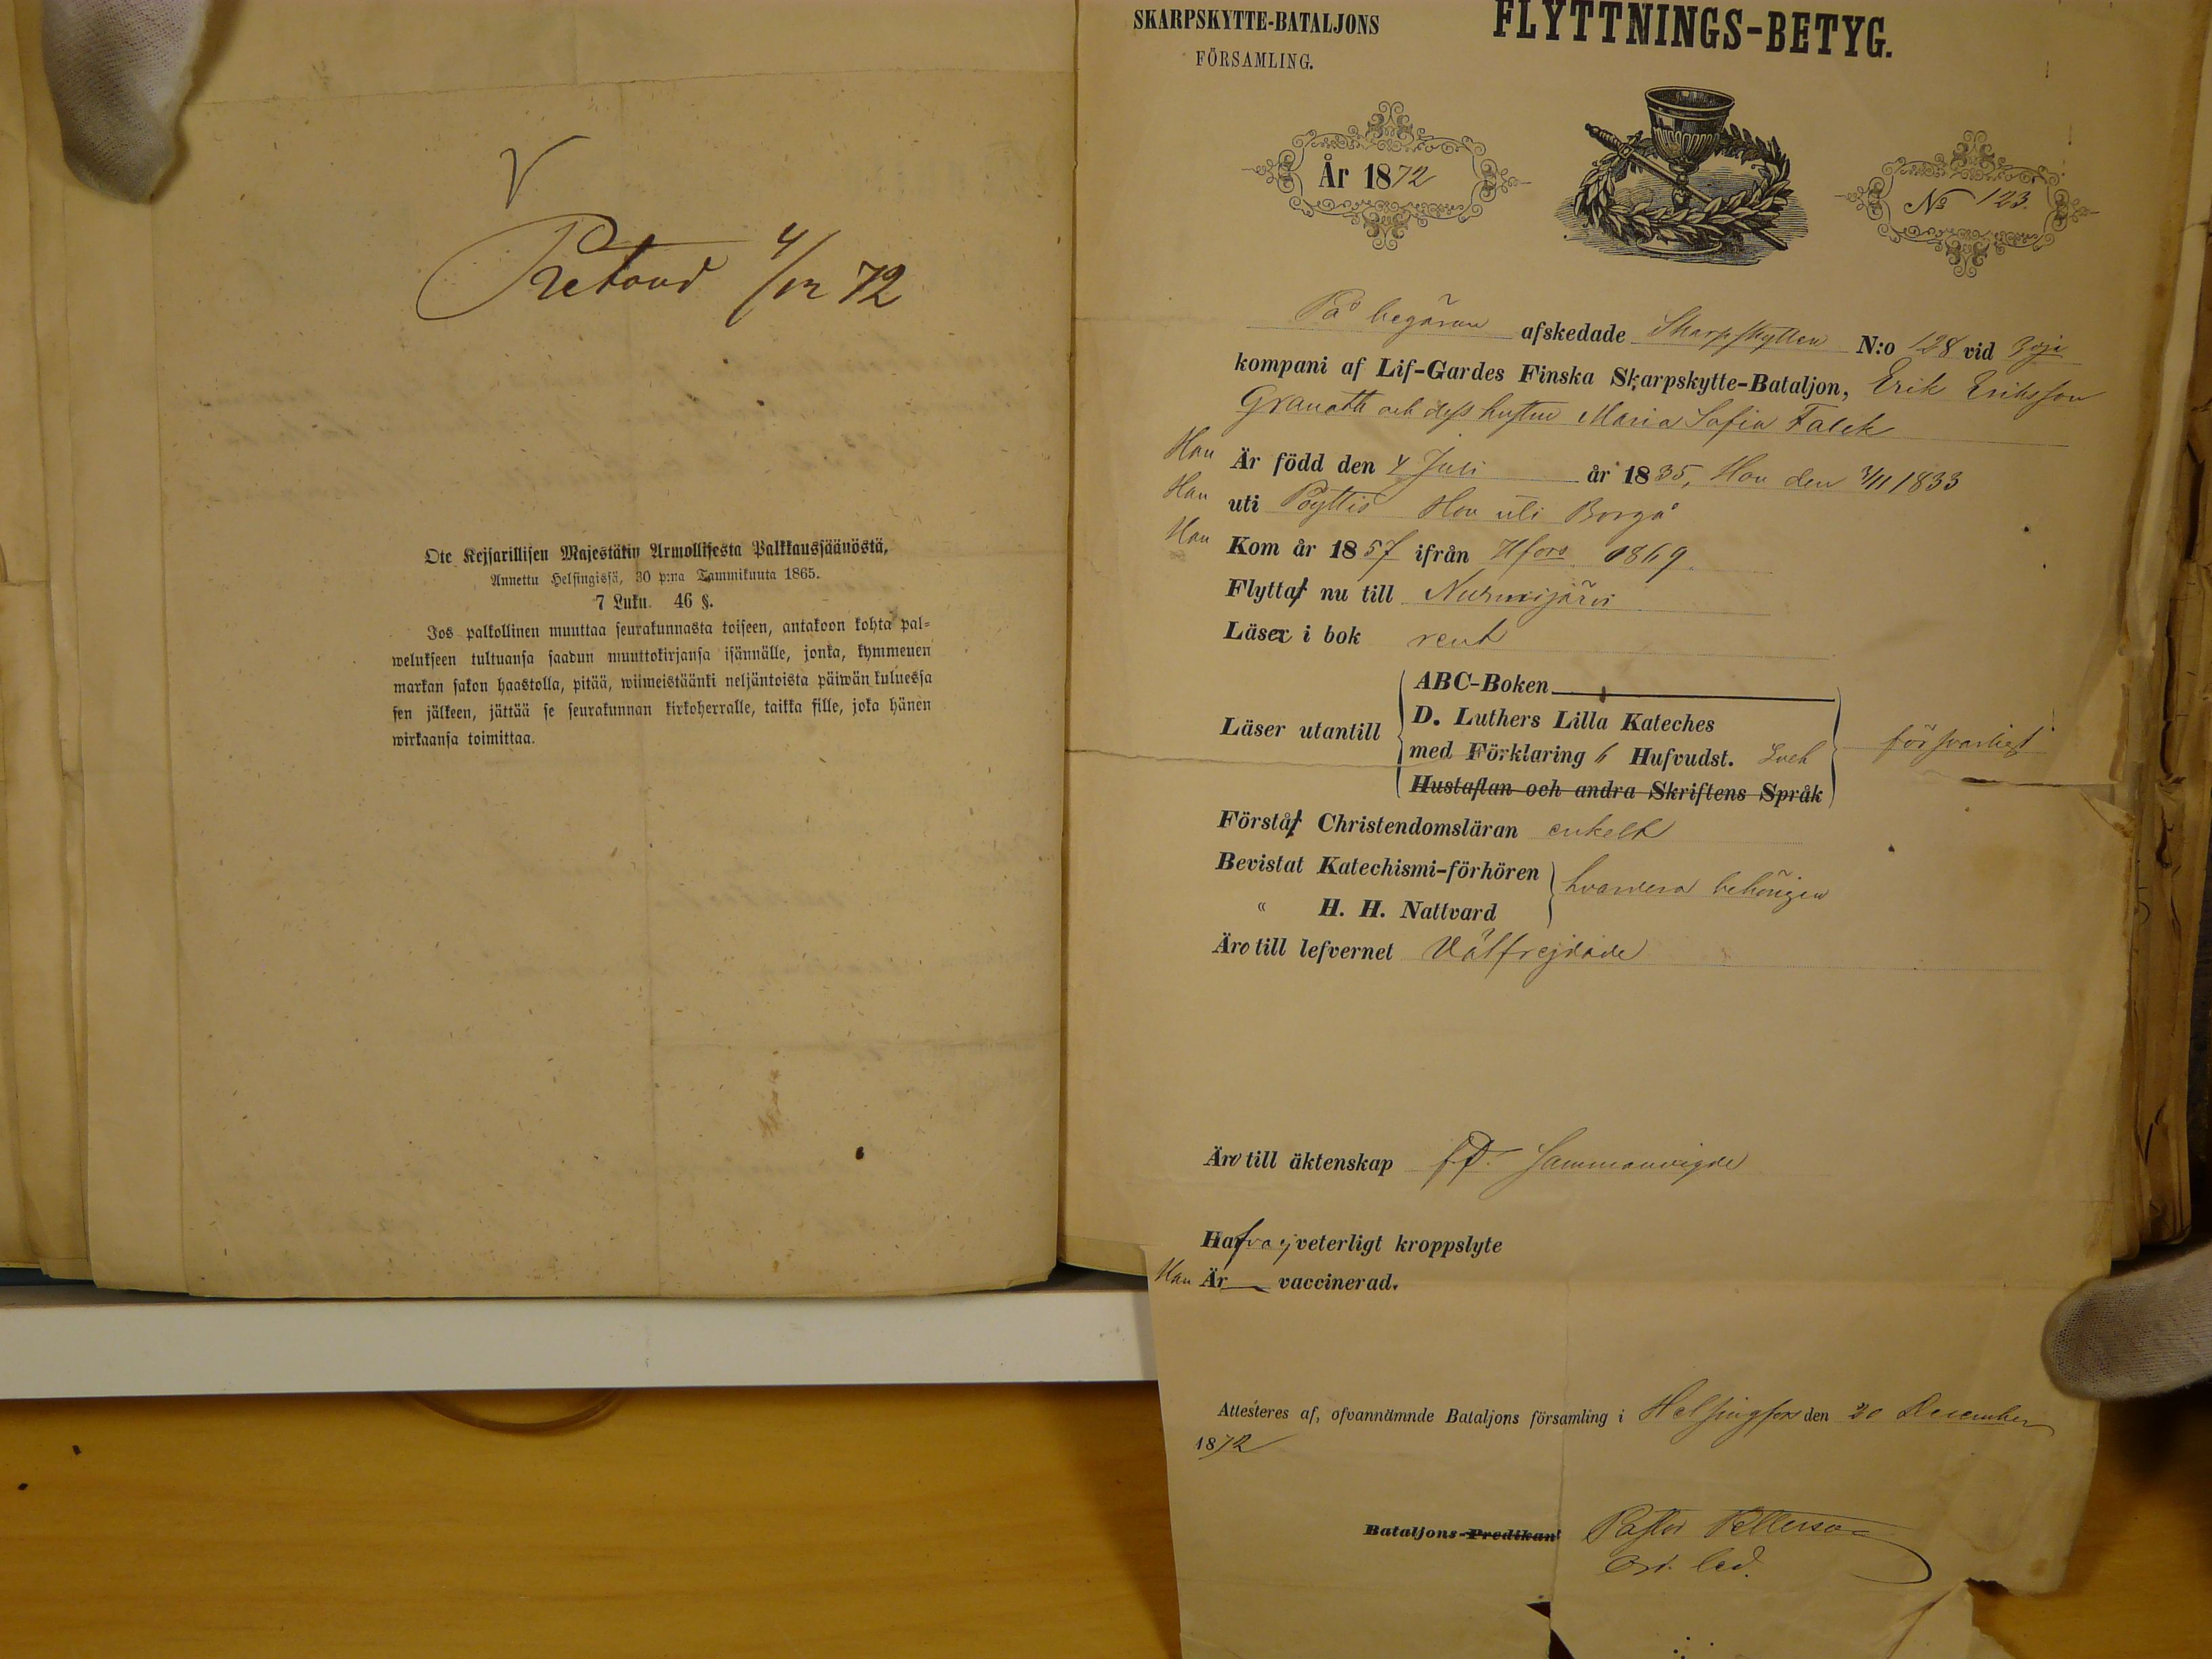 Retour 4/12 72
Ote Keisarillisen Majestätin Armollisesta Palkkaussäänöstä,
Annettu Helsingissä, 30 p:na Tammikuuta 1865.
7 Luku. 46 §.
Jos palkollinen muuttaa seurakunnasta toiseen, antakoon kohta pal=
welukseen tultuansa saadun muuttokirjansa isännälle, jonka, kymmenen
markan sakon haastolla, pitää, wiimeistäänki neljäntoista päiwän kuluessa
sen jälkeen, jättää se seurakunnan kirkoherralle, taikka sille, joka hänen
wirkaansa toimittaa.
SKARPSKYTTE-BATALJONS
FÖRSAMLING.
FLYTTNINGS-BETYG.
År 1872
No 123.
På begäran afskedade Skarpskytten N:o 128 vid 3dje
kompani af Lif-Gardes Finska Skarpskytte-Bataljon, Erik Eriksson
Granath och dess hustru Maria Sofia Falck
Han Är född den 4 Juli år 1835, Hon den 7/11 1833
Han uti Pöyttis Hon uti Borgå
Han Kom år 1857 ifrån Hfors 1869.
Flytta nu till Nurmijärvi
Läser i bok rent
Läser utantill
ABC-Boken
D. Luthers Lilla Kateches
med Förklaring 6 Hufvudst.
Hustaflan och andra Skriftens Språk
försvarligt
Förstå Christendomsläran enkelt
Bevistat Katechismi-förhören
" H. H. Nattvard
hvardera behörigen
Äro till lefvernet Välfrejdade
Äro till äktenskap Sammanvigde
Hafva ej veterligt kroppslyte
Han Är vaccinerad.
Attesteres af, ofvannämnde Bataljons församling i Helsingfors den 20 December
1872
Bataljons-Predikant Pastor Pettersson